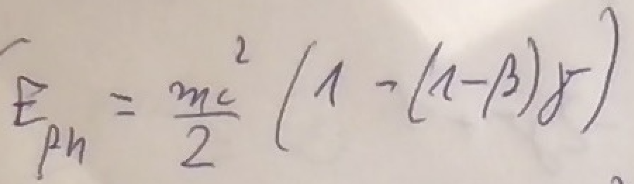 E_ph = mc²/2 (1 - (1-β)γ)